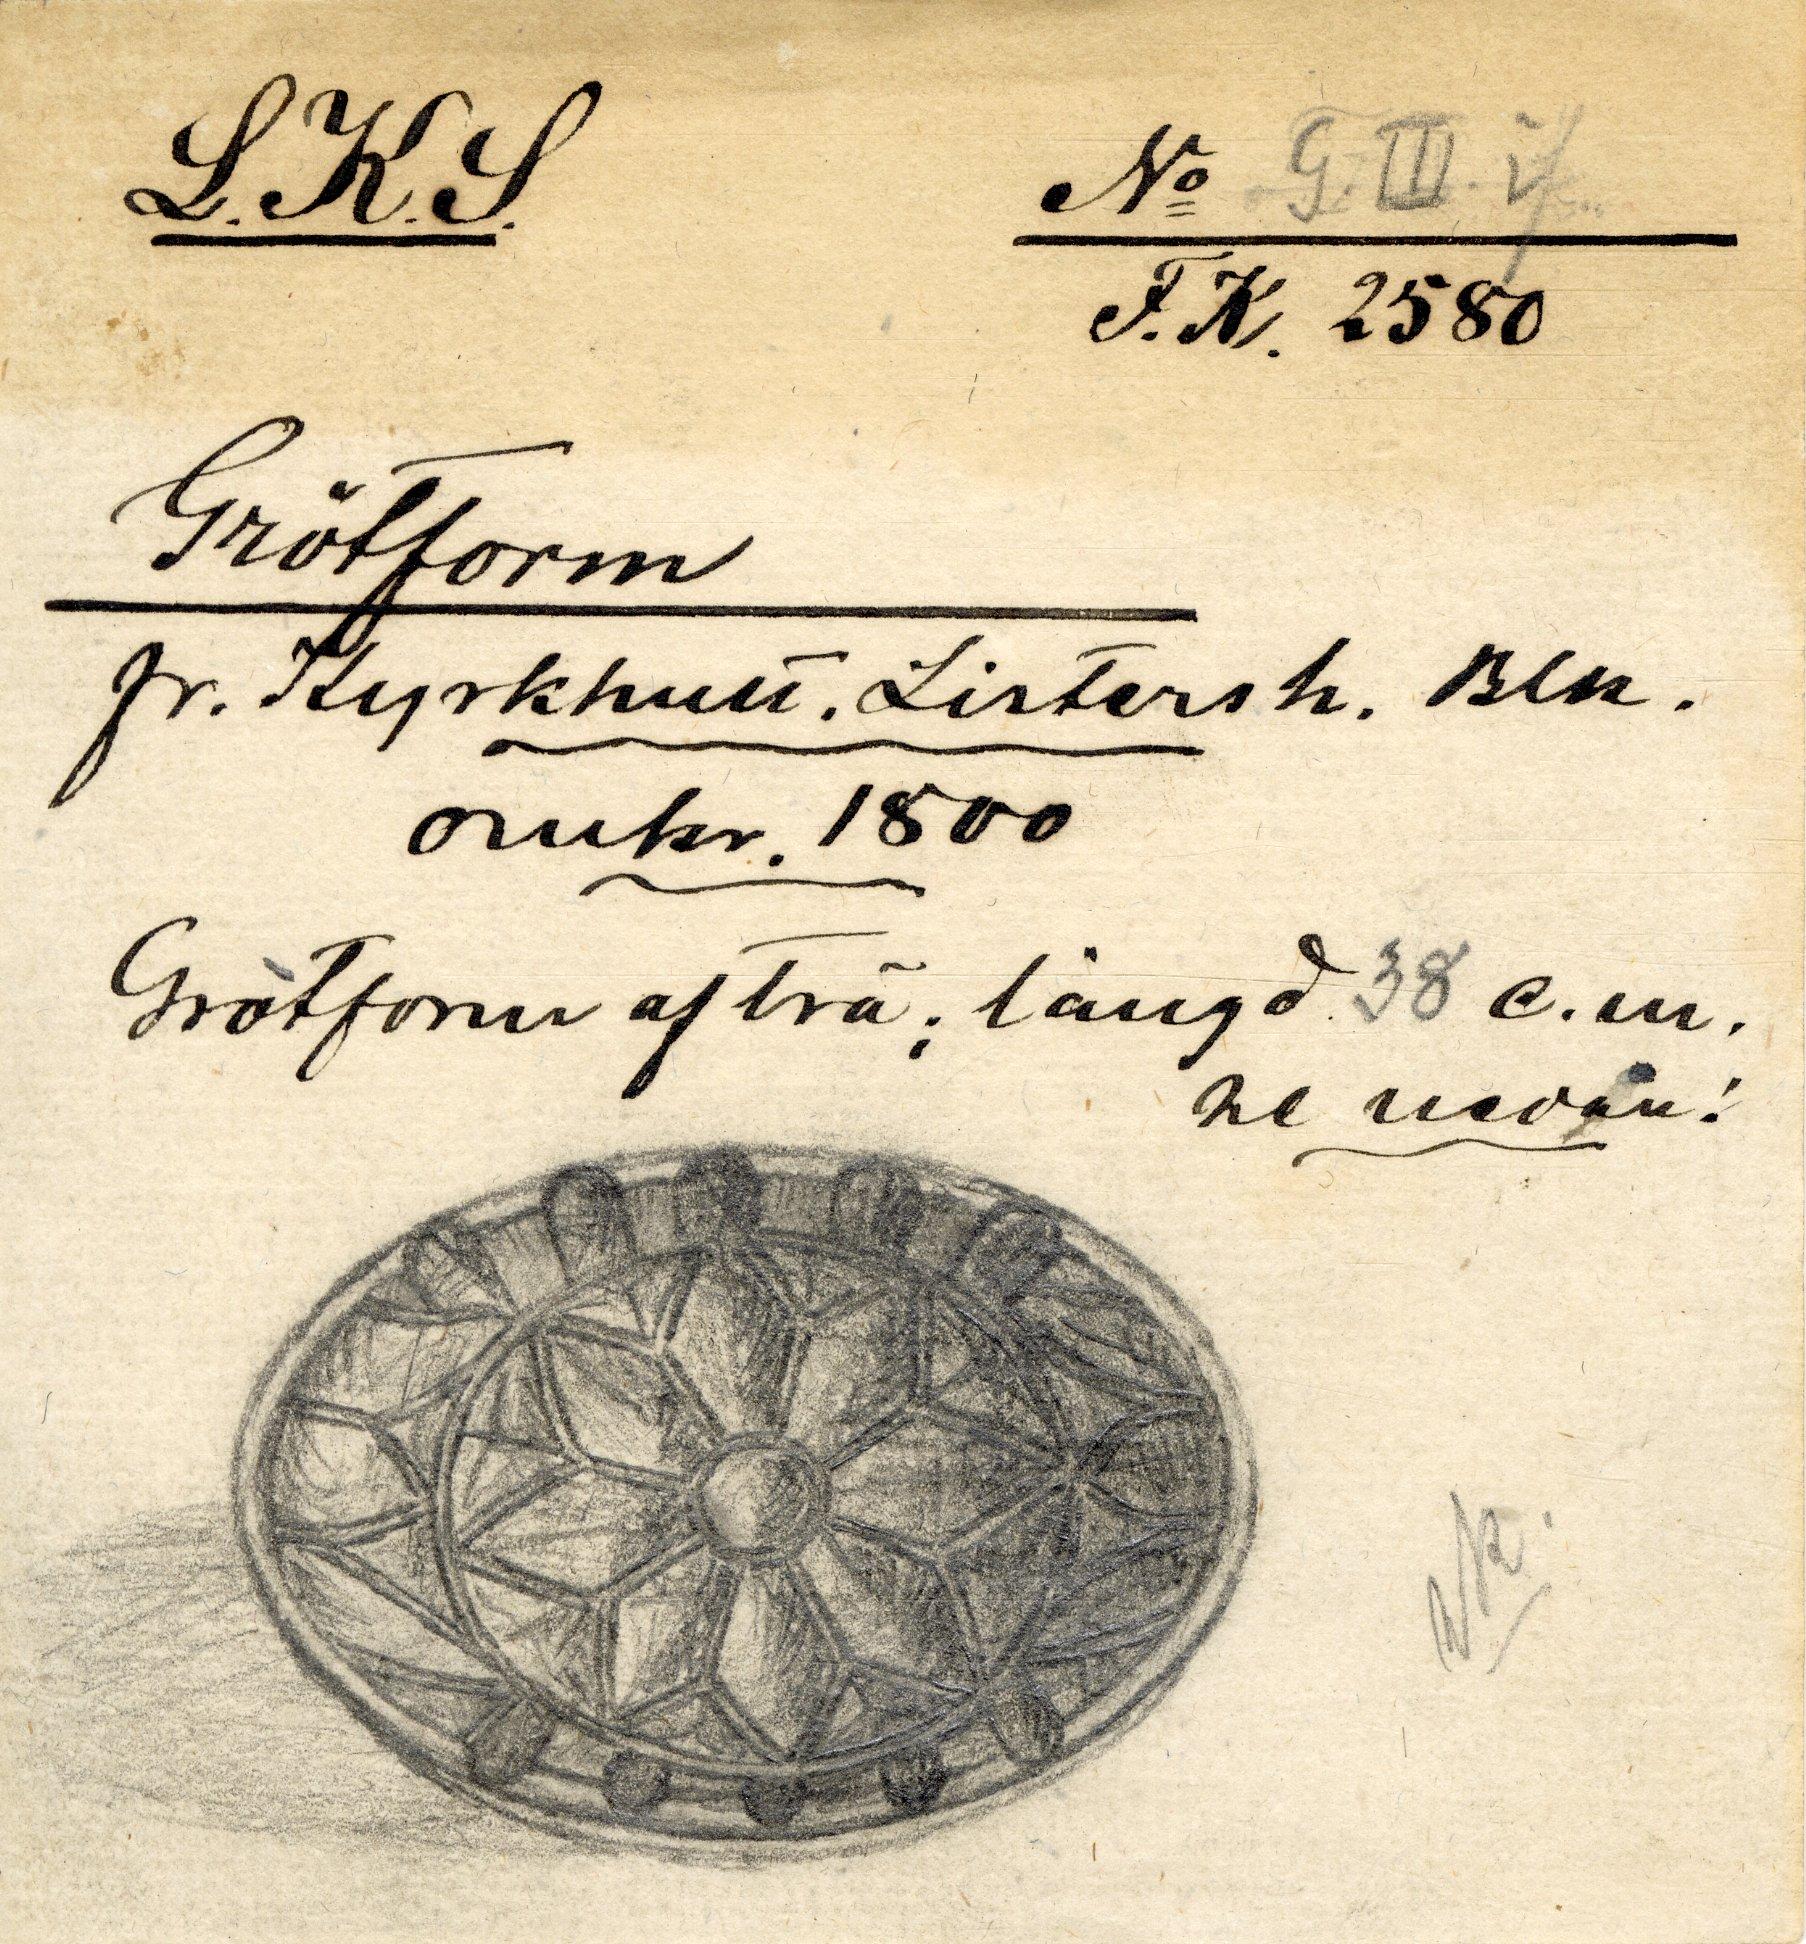 L.K.S.
No G. III. i/
F.K. 2580
Grötform
fr. Kyrkhult. Listersh. Blk.
omkr. 1800
Grötform af trä; längd 38 c.m.
se nedan!